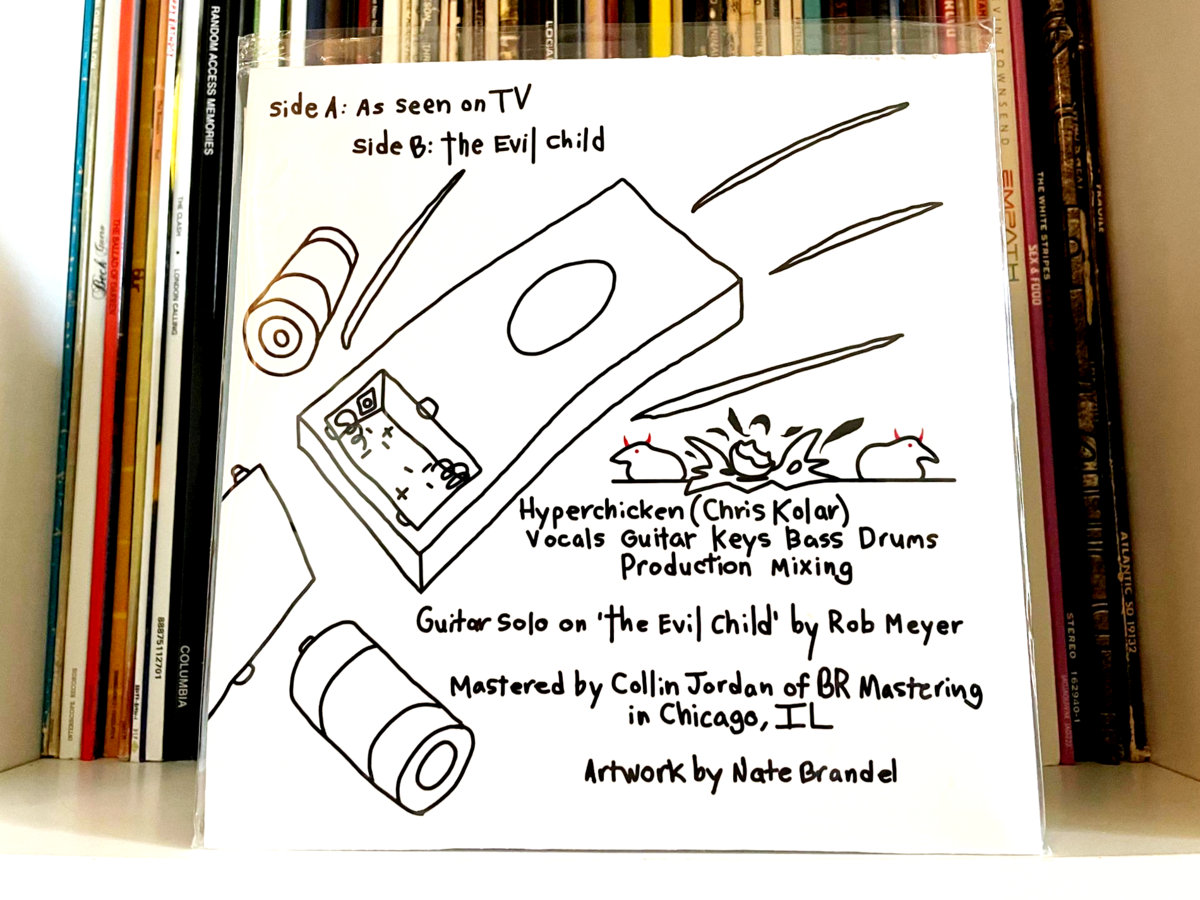 side A: As seen on TV
side B: the Evil child
Hyperchicken (Chris Kolar)
Vocals Guitar Keys Bass Drums
Production Mixing
Guitar Solo on 'the Evil child' by Rob Meyer
Mastered by Collin Jordan of BR Mastering
in Chicago, IL
Artwork by Nate Brandel
RANDOM ACCESS MEMORIES
88875112701
COLUMBIA
THE CLASH • LONDON CALLING
THE BALLAD OF DARREN
EMPATH
THE WHITE STRIPES
SEX & FOOD
STEREO 162940-1
ATLANTIC SD 19132